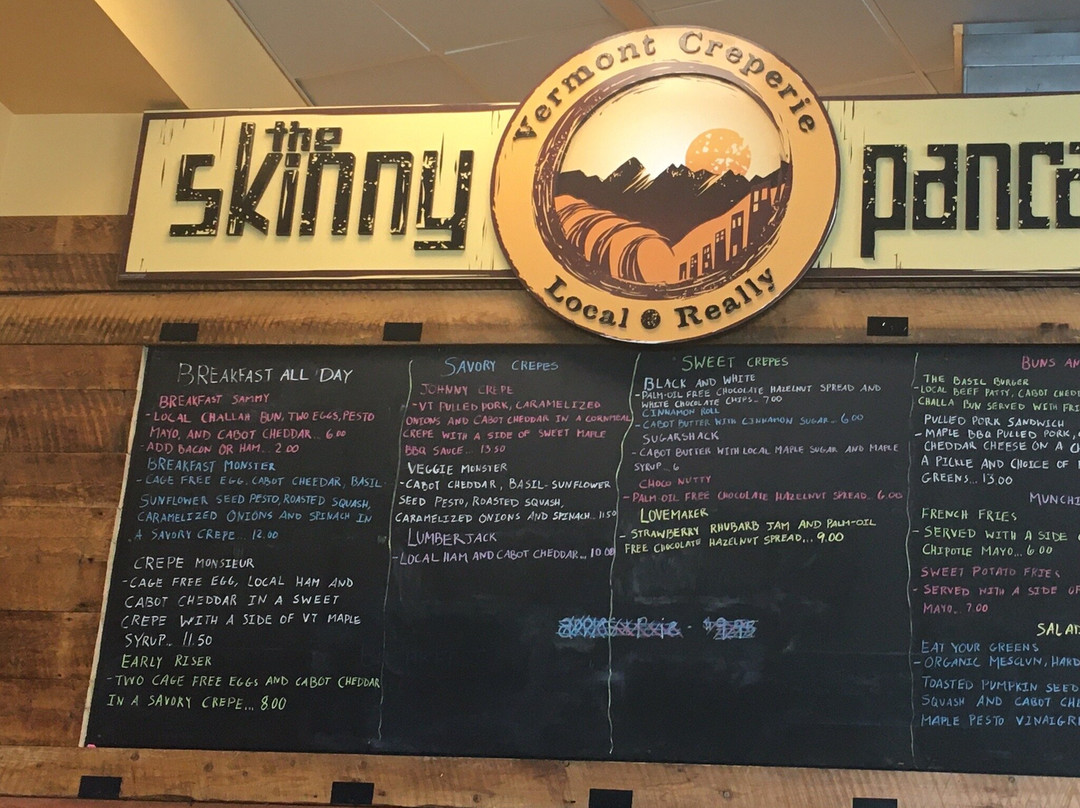 the
skinny
Vermont Creperie
Local @ Really
panca
BREAKFAST ALL DAY
BREAKFAST SAMMY
-LOCAL CHALLAH BUN, TWO EGGS, PESTO
MAYO, AND CABOT CHEDDAR... 6.00
-ADD BACON OR HAM... 2.00
BREAKFAST MONSTER
-CAGE FREE EGG, CABOT CHEEDAR, BASIL-
SUNFLOWER SEED PESTO, ROASTED SQUASH,
CARAMELIZED ONIONS AND SPINACH IN
A SAVORY CREPE... 12.00
CREPE MONSIEUR
-CAGE FREE EGG, LOCAL HAM AND
CABOT CHEDDAR IN A SWEET
CREPE WITH A SIDE OF VT MAPLE
SYRUP... 11.50
EARLY RISER
-TWO CAGE FREE EGGS AND CABOT CHEDDAR
IN A SAVORY CREPE... 8.00
SAVORY CREPES
JOHNNY CREPE
-VT PULLED PORK, CARAMELIZED
ONIONS AND CHEDDAR IN A CORNMEAL
CREPE WITH A SIDE OF SWEET MAPLE
BBQ SAUCE... 13.50
VEGGIE MONSTER
-CABOT CHEDDAR, BASIL-SUNFLOWER
SEED PESTO, ROASTED SQUASH,
CARAMELIZED ONIONS AND SPINACH... 11.50
LUMBERJACK
-LOCAL HAM AND CABOT CHEDDAR... 10.00
SWEET CREPES
BLACK AND WHITE
-PALM-OIL FREE CHOCOLATE HALELNUT SPREAD AND
WHITE CHOCOLATE CHIPS... 7.00
CINNAMON ROLL
-CABOT BUTTER WITH CINNAMON SUGAR... 6.00
SUGARSHACK
-CABOT BUTTER WITH LOCAL MAPLE SUGAR AND MAPLE
SYRUP... 6
CHOCO NUTTY
-PALM-OIL FREE CHOCOLATE HAZELNUT SPREAD. 6.00
LOVEMAKER
-STRAWBERRY RHUBARB JAM AND PALM-OIL
FREE CHOCOLATE HAZELNUT SPREAD... 9.00
BUNS AN
THE BASIL BURGER
-LOCAL BEEF PATTY, CABOT CHEDD
CHALLA BUN SERVED WITH FRI
PULLED PORK SANDWICH
-MAPLE BBQ PULLED PORK,
CHEDDAR CHEESE ON A C
A PICKLE AND CHOICE OF
GREENS... 13.00
MUNCHI
FRENCH FRIES
-SERVED WITH A SIDE
CHIPOTLE MAYO... 6.00
SWEET POTATO FRIES
-SERVED WITH A SIDE OF
MAYO... 7.00
SALA
EAT YOUR GREENS
-ORGANIC MESCLUN, HARD
TOASTED PUMPKIN SEED
SQUASH AND CABOT CHE
MAPLE PESTO VINAIGR